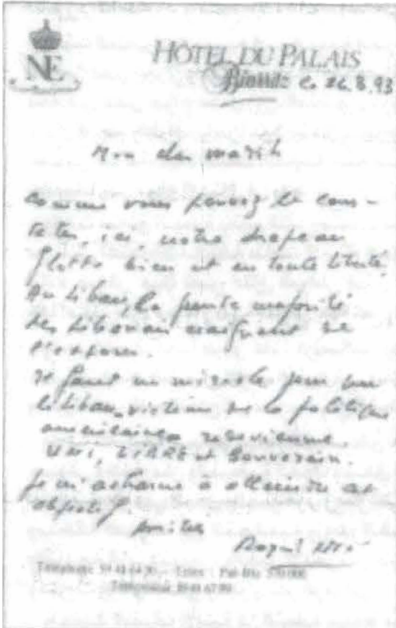 NE
HÔTEL DU PALAIS
Biarritz le 26.8.93
Mon cher
comme vous pouvez le cons-
tater, ici, notre drapeau
flotte bien et en toute liberté.
Au Liban, la grande majorité
des Libanais craignent de
l'exposer.
Il faut un miracle pour que
le Liban, victime de la politique
américaine redevienne
UNI, LIBRE et Souverain.
Je m'acharne à atteindre cet
objectif.
Amitiés
Téléphone